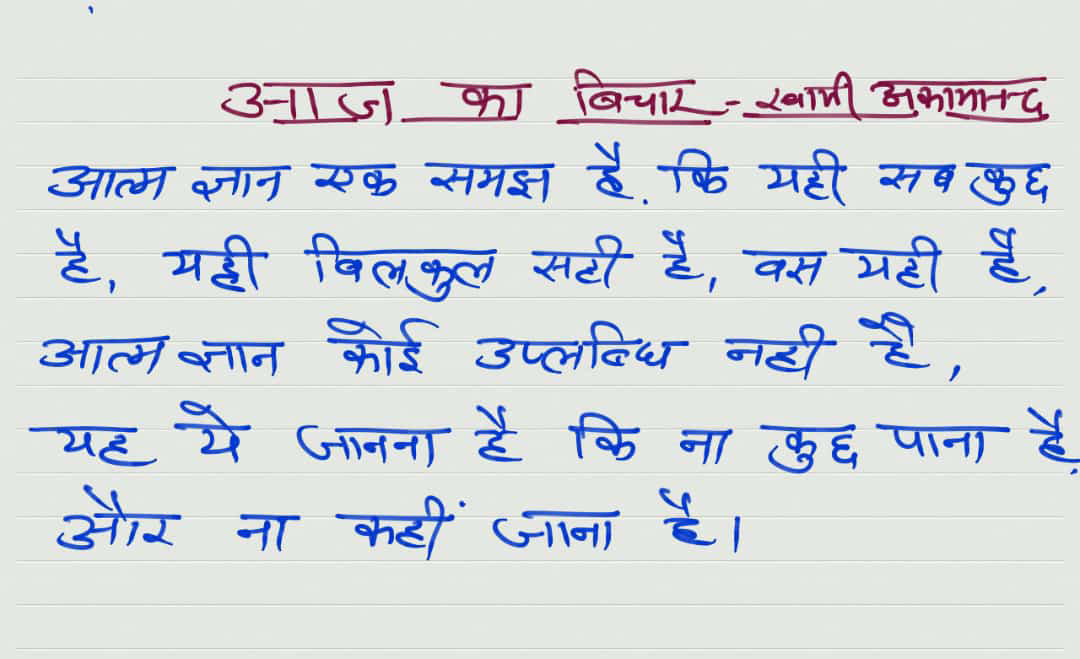 आज का बिचार - स्वामी अकामानन्द
आत्म ज्ञान एक समझ है. कि यही सब कुछ
है, यही बिलकुल सही है, वस यही है,
आत्म ज्ञान कोई उप्लब्धि नही है,
यह ये जानना है कि ना कुछ पाना है,
और ना कहीं जाना है।